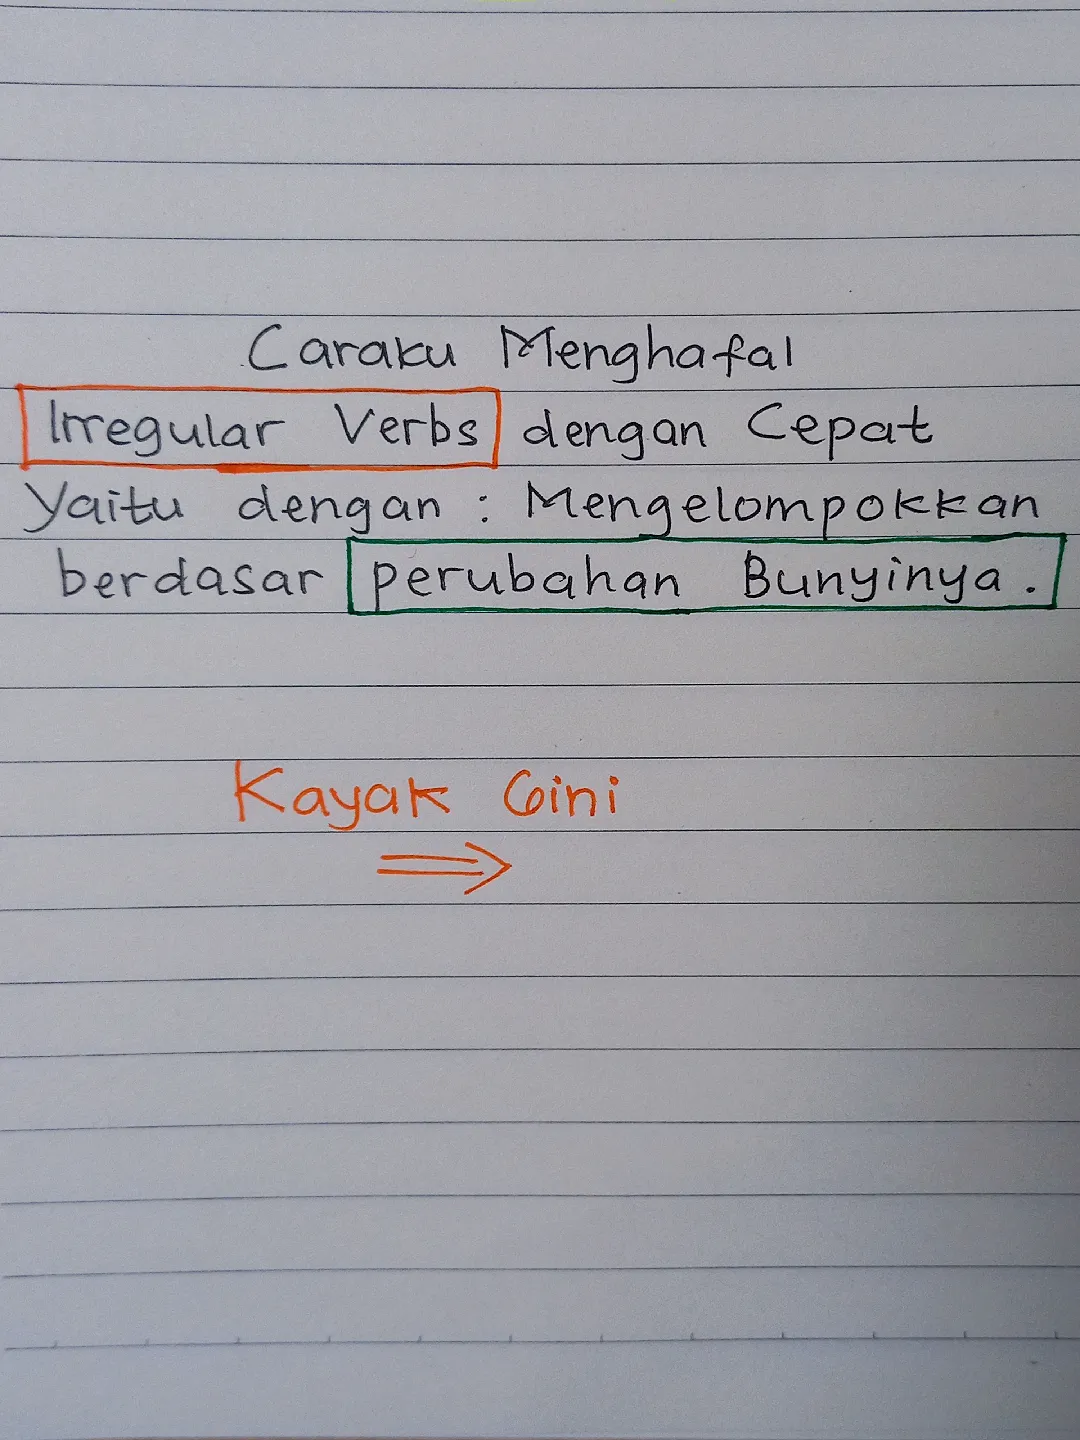 Caraku Menghafal
Irregular Verbs dengan Cepat
Yaitu dengan : Mengelompokkan
berdasar perubahan Bunyinya.
Kayak Gini